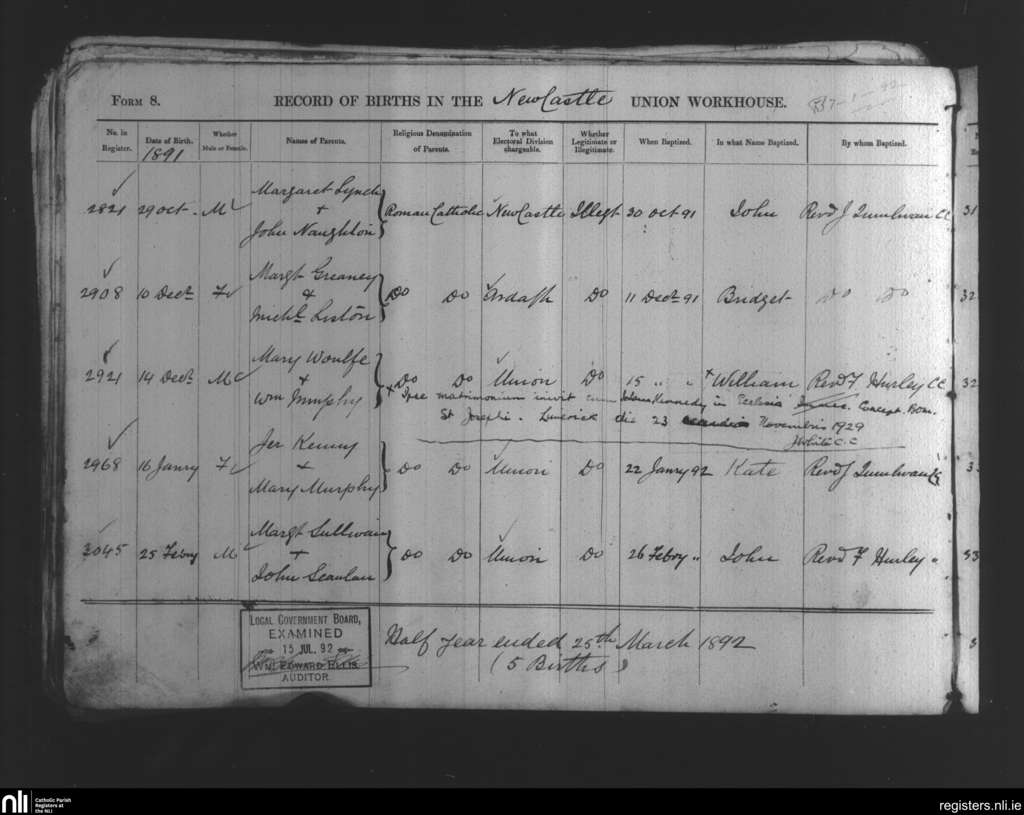 FORM 8. RECORD OF BIRTHS IN THE NewCastle UNION WORKHOUSE.
No. in Register. Date of Birth. Whether Male or Female. Names of Parents. Religious Denomination of Parents. To what Electoral Division chargeable. Whether Legitimate or Illegitimate. When Baptized. In what Name Baptized. By whom Baptized.
1891
Margaret Lynch
2821 29 Oct. M + Roman Catholic NewCastle Illegt 30 Oct 91 John Revd J CC
John Naughton
Margt Greaney
2908 10 Decr F & Do Do Ardagh Do 11 Decr 91 Bridget Do Do
Michl Liston
Mary Woulfe
2921 14 Decr M + Do Do Union Do 15 " " + William Revd F Hurley CC
Wm Murphy + Ipse matrimonium inivit cum Kennedy in Ecclesia Concept. B.V.M.
St Josephi. Limerick die 23 Novembris 1929
C.C
Jer Kenny
2968 16 Janry F + Do Do Union Do 22 Janry 92 Kate Revd J CC
Mary Murphy
Margt Sullivan
3045 25 Febry M + Do Do Union Do 26 Febry " John Revd F Hurley "
John Scanlan
LOCAL GOVERNMENT BOARD,
EXAMINED
15 JUL. 92
WM. EDWARD ELLIS
AUDITOR.
Half year ended 25th March 1892
(5 Births)
nli Catholic Parish Registers at the NLI
registers.nli.ie